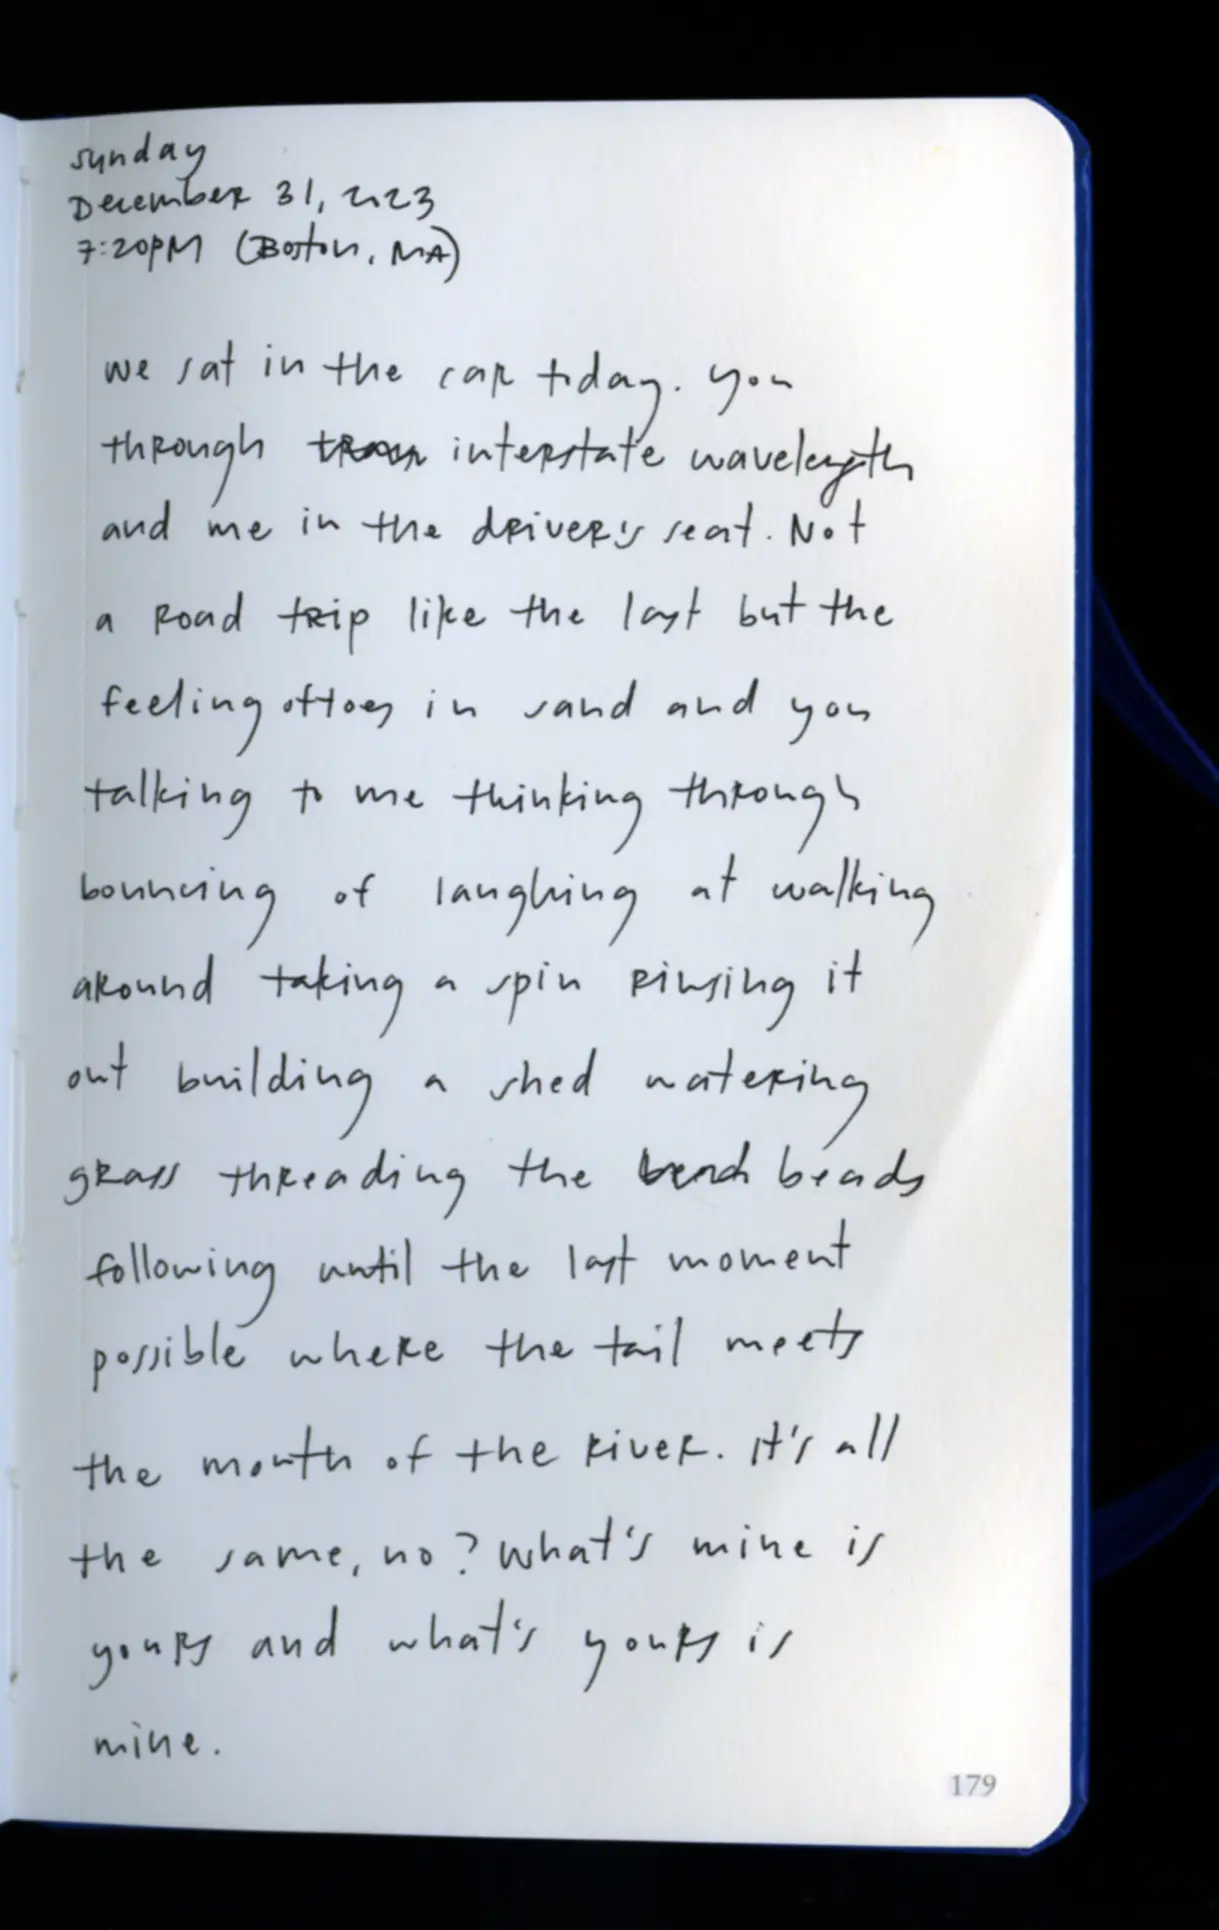 sunday
December 31, 2023
7:20PM (Boston, MA)
we sat in the car today. you
through interstate wavelength
and me in the driver's seat. Not
a road trip like the last but the
feeling of toes in sand and you
talking to me thinking through
bouncing of laughing at walking
around taking a spin rinsing it
out building a shed watering
grass threading the beads
following until the last moment
possible where the tail meets
the mouth of the river. it's all
the same, no? what's mine is
yours and what's yours is
mine.
179